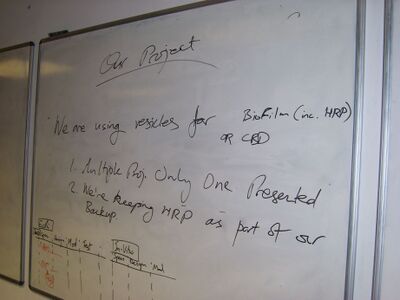 Our Project
We are using vesicles for BioFilm (inc. HRP)
OR CBD
1. Multiple Proj. Only One Presented
2. We're keeping HRP as part of our
Backup
In-Vitro
Test